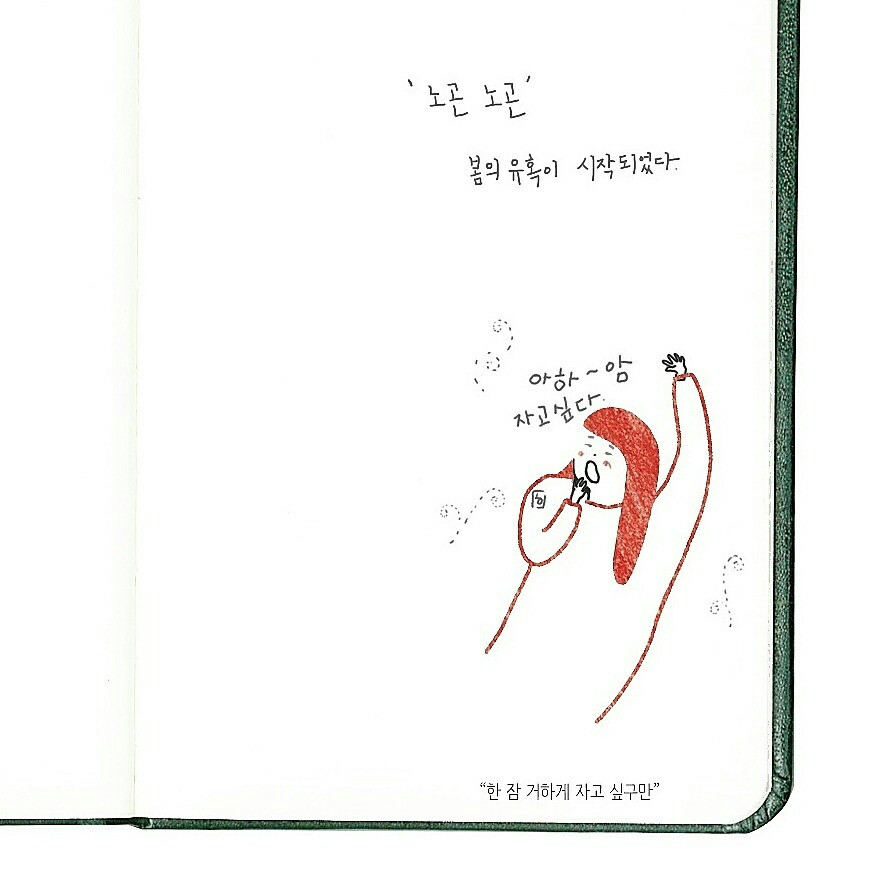 '노곤 노곤'
봄의 유혹이 시작되었다.
아하~암
자고싶다.
"한 잠 거하게 자고 싶구만"